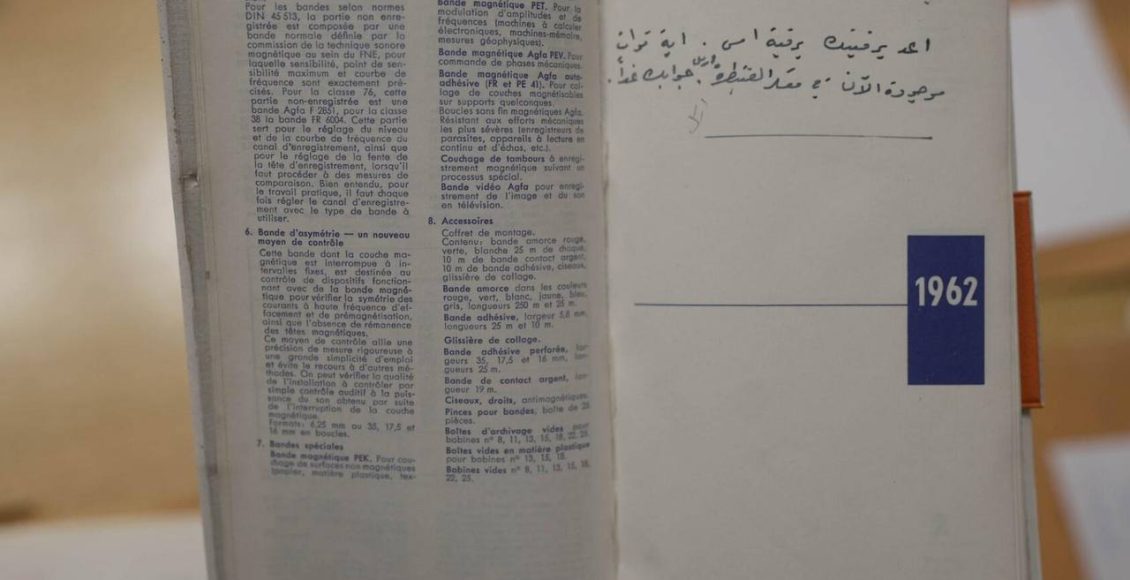 Pour les bandes selon normes
DIN 45 513, la partie non enre-
gistrée est composée par une
bande normale définie par la
commission de la technique sonore
magnétique au sein du FNE, pour
laquelle sensibilité, point de sen-
sibilité maximum et courbe de
fréquence sont exactement pré-
cisés. Pour la classe 76, cette
partie non-enregistrée est une
bande Agfa F 2851, pour la classe
38 la bande FR 6004. Cette partie
sert pour le réglage du niveau
et de la courbe de fréquence du
canal d'enregistrement, ainsi que
pour le réglage de la fente de
la tête d'enregistrement, lorsqu'il
faut procéder à des mesures de
comparaison. Bien entendu, pour
le travail pratique, il faut chaque
fois régler le canal d'enregistre-
ment avec le type de bande à
utiliser.
6. Bande d'asymétrie — un nouveau
moyen de contrôle
Cette bande dont la couche ma-
gnétique est interrompue à in-
tervalles fixes, est destinée au
contrôle de dispositifs fonction-
nant avec de la bande magné-
tique pour vérifier la symétrie des
courants à haute fréquence d'ef-
facement et de prémagnétisation,
ainsi que l'absence de rémanence
des têtes magnétiques.
Ce moyen de contrôle allie une
précision de mesure rigoureuse à
une grande simplicité d'emploi
et évite le recours à d'autres mé-
thodes. On peut vérifier la qualité
de l'installation à contrôler par
simple contrôle auditif à la puis-
sance du son obtenu par suite
de l'interruption de la couche
magnétique.
Formats: 6,25 mm ou 35, 17,5 et
16 mm en boucles.
7. Bandes spéciales
Bande magnétique PEK. Pour cou-
chage de surfaces non magnétiques
(papier, matière plastique, tex-
Bande magnétique PET. Pour la
modulation d'amplitudes et de
fréquences (machines à calculer
électroniques, machines-mémoire,
mesures géophysiques).
Bande magnétique Agfa PEV. Pour
commande de phases mécaniques.
Bande magnétique Agfa auto-
adhésive (FR et PE 41). Pour col-
lage de couches magnétisables
sur supports quelconques.
Boucles sans fin magnétiques Agfa.
Résistant aux efforts mécaniques
les plus sévères (enregistreurs de
parasites, appareils à lecture en
continu et d'échos, etc.).
Couchage de tambours à enregi-
strement magnétique suivant un
processus spécial.
Bande vidéo Agfa pour enregi-
strement de l'image et du son
en télévision.
8. Accessoires
Coffret de montage.
Contenu: bande amorce rouge,
verte, blanche 25 m de chaque,
10 m de bande contact argent,
10 m de bande adhésive, ciseaux,
glissière de collage.
Bande amorce dans les couleurs
rouge, vert, blanc, jaune, bleu,
gris, longueurs 250 m et 25 m.
Bande adhésive, largeur 5,8 mm,
longueurs 25 m et 10 m.
Glissière de collage.
Bande adhésive perforée, lar-
geurs 35, 17,5 et 16 mm, lon-
gueurs 25 m.
Bande de contact argent, lon-
gueur 19 m.
Ciseaux, droits, antimagnétiques.
Pinces pour bandes, boîte de 25
pièces.
Boîtes d'archivage vides pour
bobines nº 8, 11, 13, 15, 18, 22, 25.
Boîtes vides en matière plastique
pour bobines nº 13, 15, 18.
Bobines vides nº 8, 11, 13, 15, 18,
22, 25.
اعد برقيتك برقية امس . اية قوات
موجودة الآن في مقر القنيطرة ارسل جوابك غداً.
1962